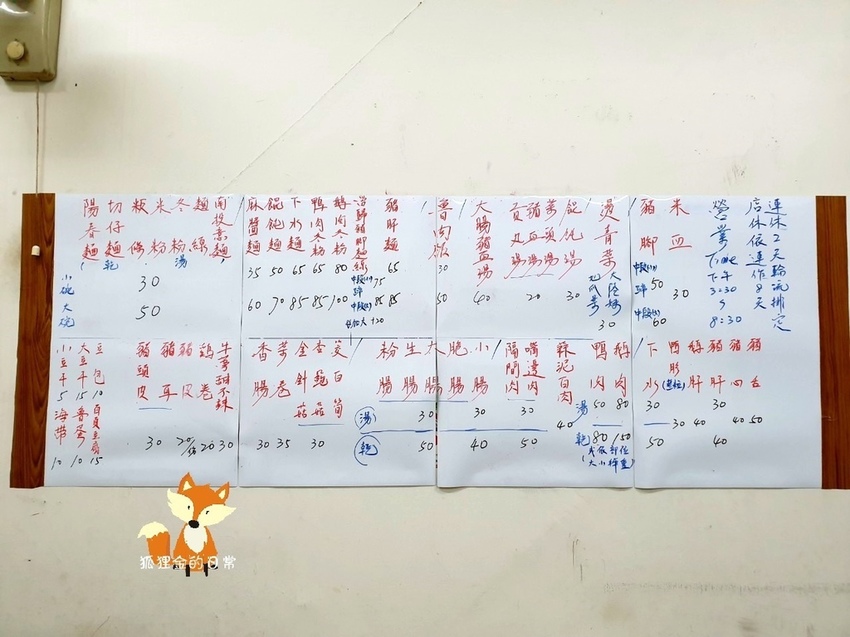 陽春麵
切仔麵
粄條
米粉
冬粉
麵線
意麵
(乾 湯
小碗 30
大碗 50
麻醬麵 35 60
餛飩麵 50 70
下水麵 65 85
鴨肉冬粉 65 85
鵝肉冬粉 80 100
豬腳麵線
75
85
+20
豬肝麵 65 85
魯肉飯 30 50
大腸豬血湯 40
貢丸湯
豬血湯
湯
20
餛飩湯 30
燙青菜
大陸妹
30
豬腳
50
60
米血 30
營業Time
下午
3:30
8:30
店休依連作8天
連休2天輪流排定
小豆干 5
大豆干 15
豆包 10
海帶 10
魯蛋 10
百頁豆腐 15
豬頭皮
豬耳 30
豬皮 20
鷄卷 20
牛蒡甜不辣 30
香腸 30
芋卷 35
金針菇
杏鮑菇
30
茭白筍
粉腸
生腸
大腸
脆腸
小腸
湯 30 30
乾 50 40
隔間肉
嘴邊肉
30
50
蒜泥白肉 40
鴨肉
鵝肉
湯 50 80
乾 80 150
大小
下水 30 50
鴨胗 30
鵝肝 40
豬肝 30 40
豬心 40
豬舌 50
狐狸金的日常